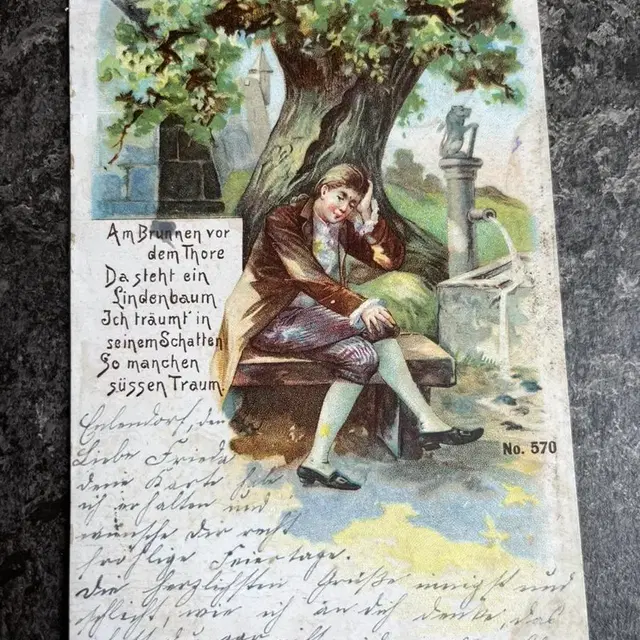 Am Brunnen vor
dem Thore
Da steht ein
Lindenbaum
Ich träumt in
seinem Schatten
So manchen
süssen Traum
No. 570
Eilendorf, den
Liebe Frieda
deine Karte habe
ich erhalten und
wünsche Dir recht
fröhlige Feiertage.
Die herzlichsten Grüße und
wie ich an dich denke, das